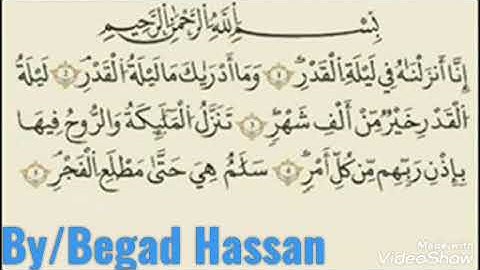 بِسْمِ اللَّهِ الرَّحْمَٰنِ الرَّحِيمِ
إِنَّا أَنزَلْنَاهُ فِي لَيْلَةِ الْقَدْرِ ١ وَمَا أَدْرَاكَ مَا لَيْلَةُ الْقَدْرِ ٢ لَيْلَةُ
الْقَدْرِ خَيْرٌ مِّنْ أَلْفِ شَهْرٍ ٣ تَنَزَّلُ الْمَلَائِكَةُ وَالرُّوحُ فِيهَا
بِإِذْنِ رَبِّهِم مِّن كُلِّ أَمْرٍ ٤ سَلَامٌ هِيَ حَتَّىٰ مَطْلَعِ الْفَجْرِ ٥
By/Begad Hassan
Made with
VideoShow